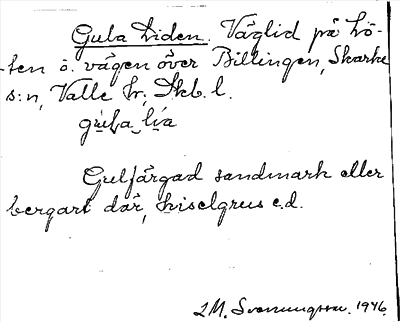 Gula Liden. Väglid på Lö-
ten ö. vägen över Billingen, Skarke
s:n, Valle hr, Skb. l.
gu̱la li̱a
Gulfärgad sandmark eller
bergart där, kiselgrus e.d.
I.M. Svenningsson. 1946.